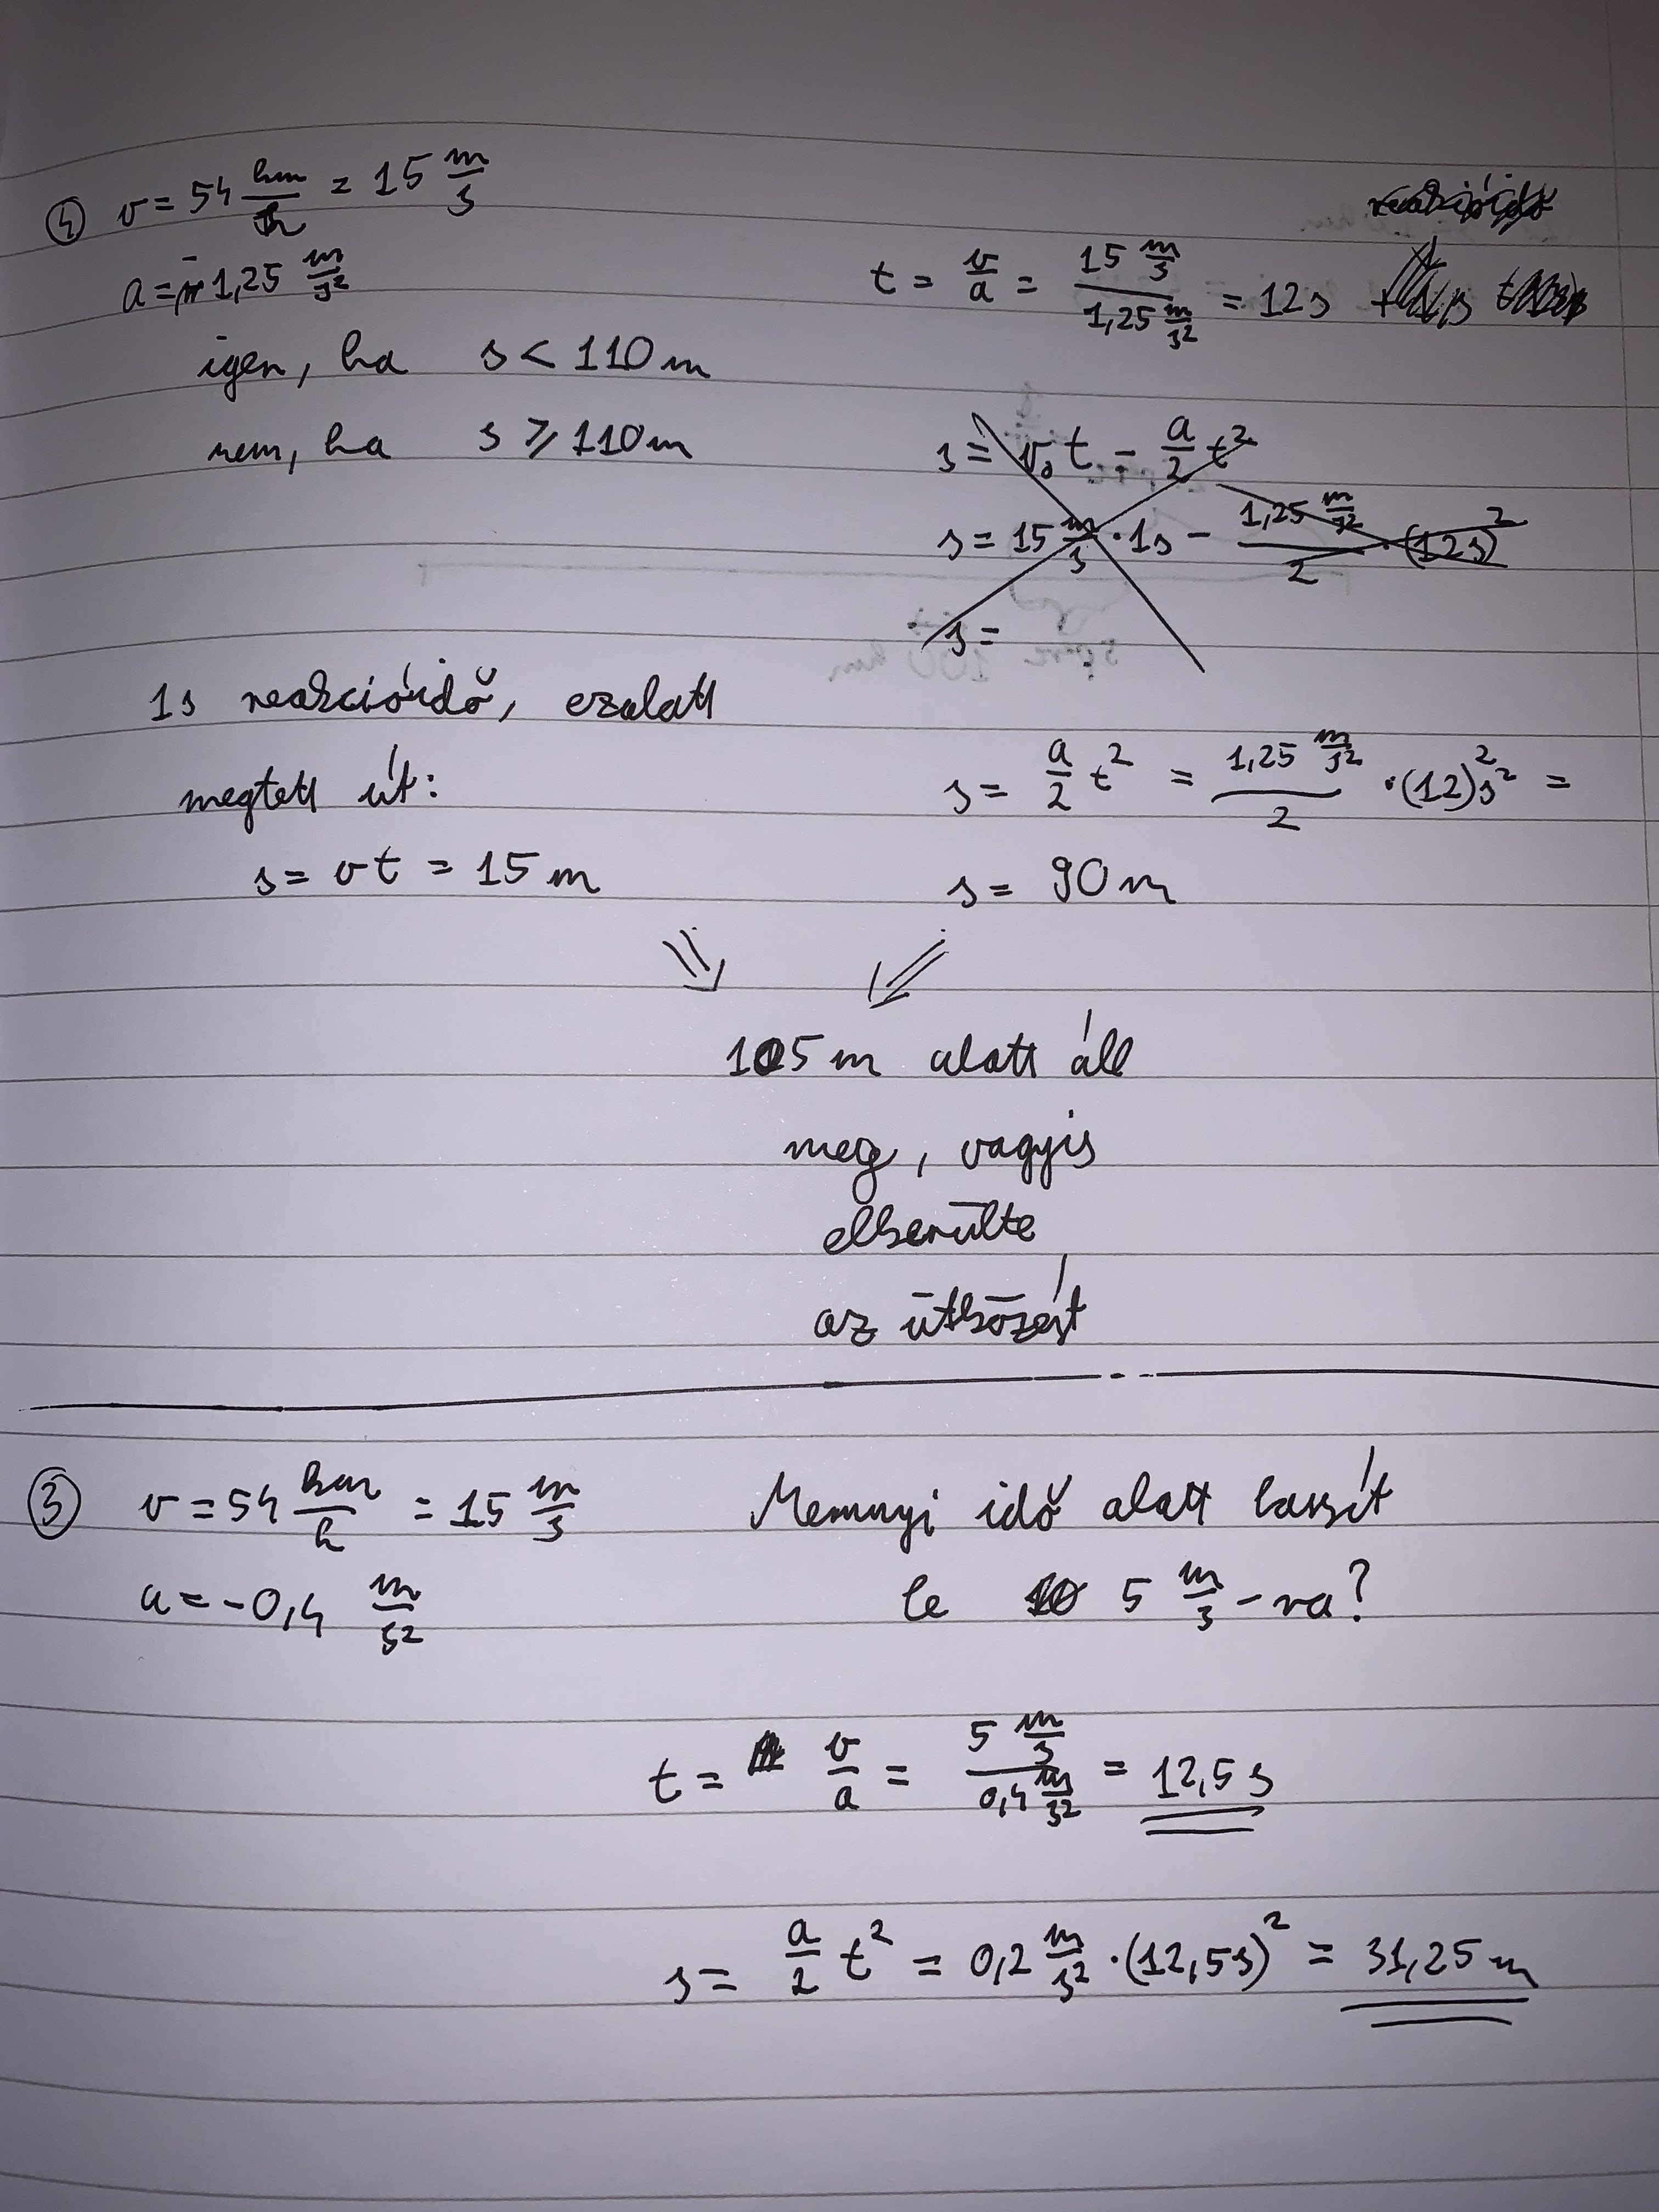 ④ v = 54 km/h = 15 m/s
a = -1,25 m/s²
t = v/a = 15 m/s / 1,25 m/s² = 12s
igen, ha s < 110 m
nem, ha s ⩾ 110 m
s = v₀t - a/2 t²
s = 15 m/s · 1s - 1,25 m/s² / 2 · (12s)²
s =
1s reakcióidő, ezalatt
megtett út:
s = vt = 15 m
s = a/2 t² = 1,25 m/s² / 2 · (12)² s² =
s = 90 m
⇘ ⇙
105 m alatt áll
meg, vagyis
elkerülte
az ütközést
③ v = 54 km/h = 15 m/s
a = -0,4 m/s²
Mennyi idő alatt lassít
le 5 m/s-ra?
t = v/a = 5 m/s / 0,4 m/s² = 12,5 s
s = a/2 t² = 0,2 m/s² · (12,5s)² = 31,25 m